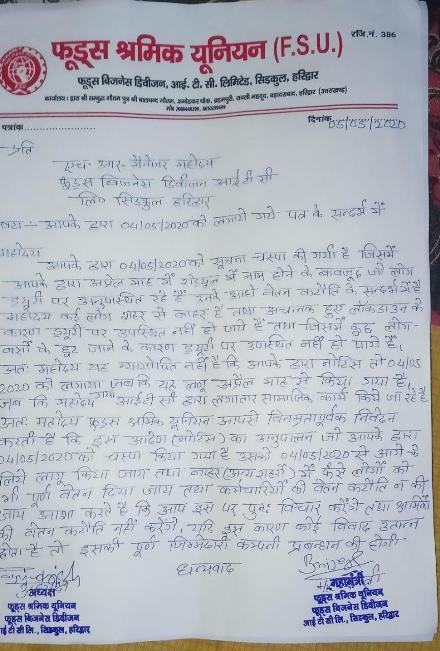 रजि.नं. 386
फूड्स श्रमिक यूनियन (F.S.U.)
फूड्स बिजनेस डिवीजन, आई. टी. सी. लिमिटेड, सिडकुल, हरिद्वार
पत्रांक
दिनांक 05/05/2020
प्रति
एच॰ आर॰ मैनेजर महोदय
फूड्स बिजनेस डिवीजन आई टी सी
लि॰ सिडकुल हरिद्वार
आपके द्वारा 04/05/2020 को लगाये गये पत्र के सन्दर्भ में
महोदय
आपके द्वारा 04/05/2020 को सूचना चस्पा की गयी है जिसमें
आपके द्वारा अप्रैल माह में शेड्यूल में नाम होने के बावजूद जो लोग
ड्यूटी पर अनुपस्थित रहे हैं उनके आधे वेतन कटौति के सन्दर्भ में है
महोदय कई लोग शहर से बाहर हैं तथा अचानक हुए लॉकडाउन के
कारण ड्यूटी पर उपस्थित नहीं हो पाये हैं तथा जिसमें कुछ लोग
बसों के छूट जाने के कारण ड्यूटी पर उपस्थित नहीं हो पाये हैं,
अतः महोदय यह न्यायोचित नहीं है कि आपके द्वारा नोटिस तो 04/05
2020 को लगाया जब कि यह लागू अप्रैल माह से किया गया है,
जब कि महोदय आई टी सी द्वारा लगातार सामाजिक कार्य किये जा रहे हैं
अतः महोदय फूड्स श्रमिक यूनियन आपसे विनम्रतापूर्वक निवेदन
करती है कि इस आदेश (नोटिस) का अनुपालन जो आपके द्वारा
04/05/2020 को चस्पा किया गया है उसको 04/05/2020 से आगे के
लिये लागू किया जाय तथा बाहर (अन्य शहरों) में फँसे लोगों को
भी पूर्ण वेतन दिया जाय तथा कर्मचारियों की वेतन कटौति न की
जाय आशा करते हैं कि आप इस पर पुनः विचार करेंगे तथा श्रमिकों
की वेतन कटौति नहीं करेंगे, यदि इस कारण कोई विवाद उत्पन्न
होता है तो इसकी पूर्ण जिम्मेदारी कम्पनी प्रबन्धन की होगी
धन्यवाद
अध्यक्ष
फूड्स श्रमिक यूनियन
फूड्स बिजनेस डिवीजन
आई टी सी लि., सिडकुल, हरिद्वार
महामंत्री
फूड्स श्रमिक यूनियन
फूड्स बिजनेस डिवीजन
आई टी सी लि., सिडकुल, हरिद्वार